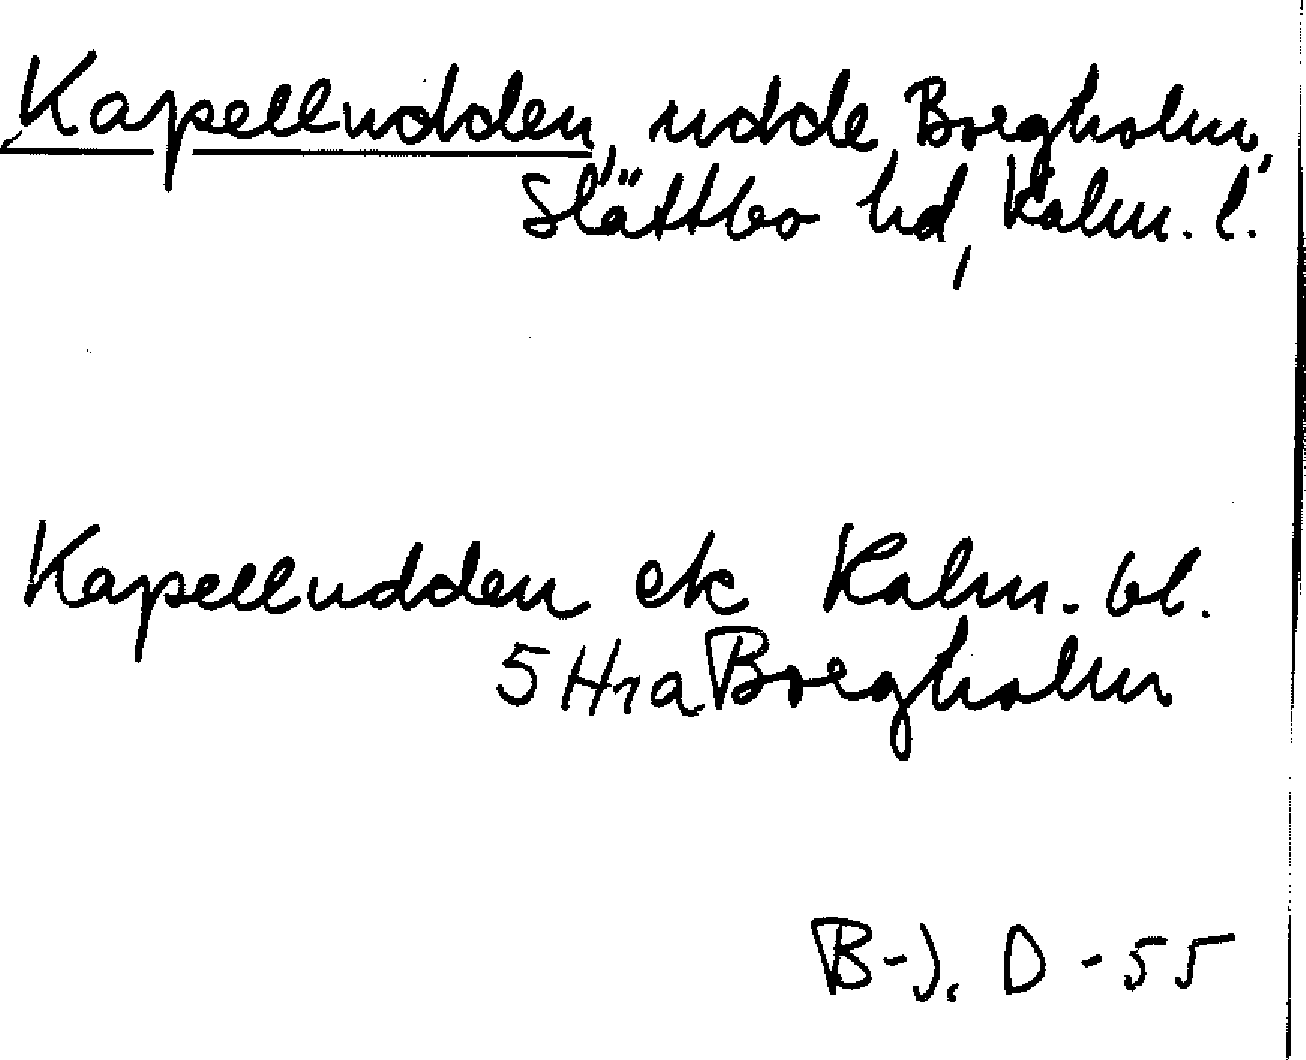 Kapelludden, udde, Borgholm,
Slättbo hd, Kalm. l.
Kapelludden ek Kalm. bl.
5 H 1 a Borgholm
B-J. D - 55